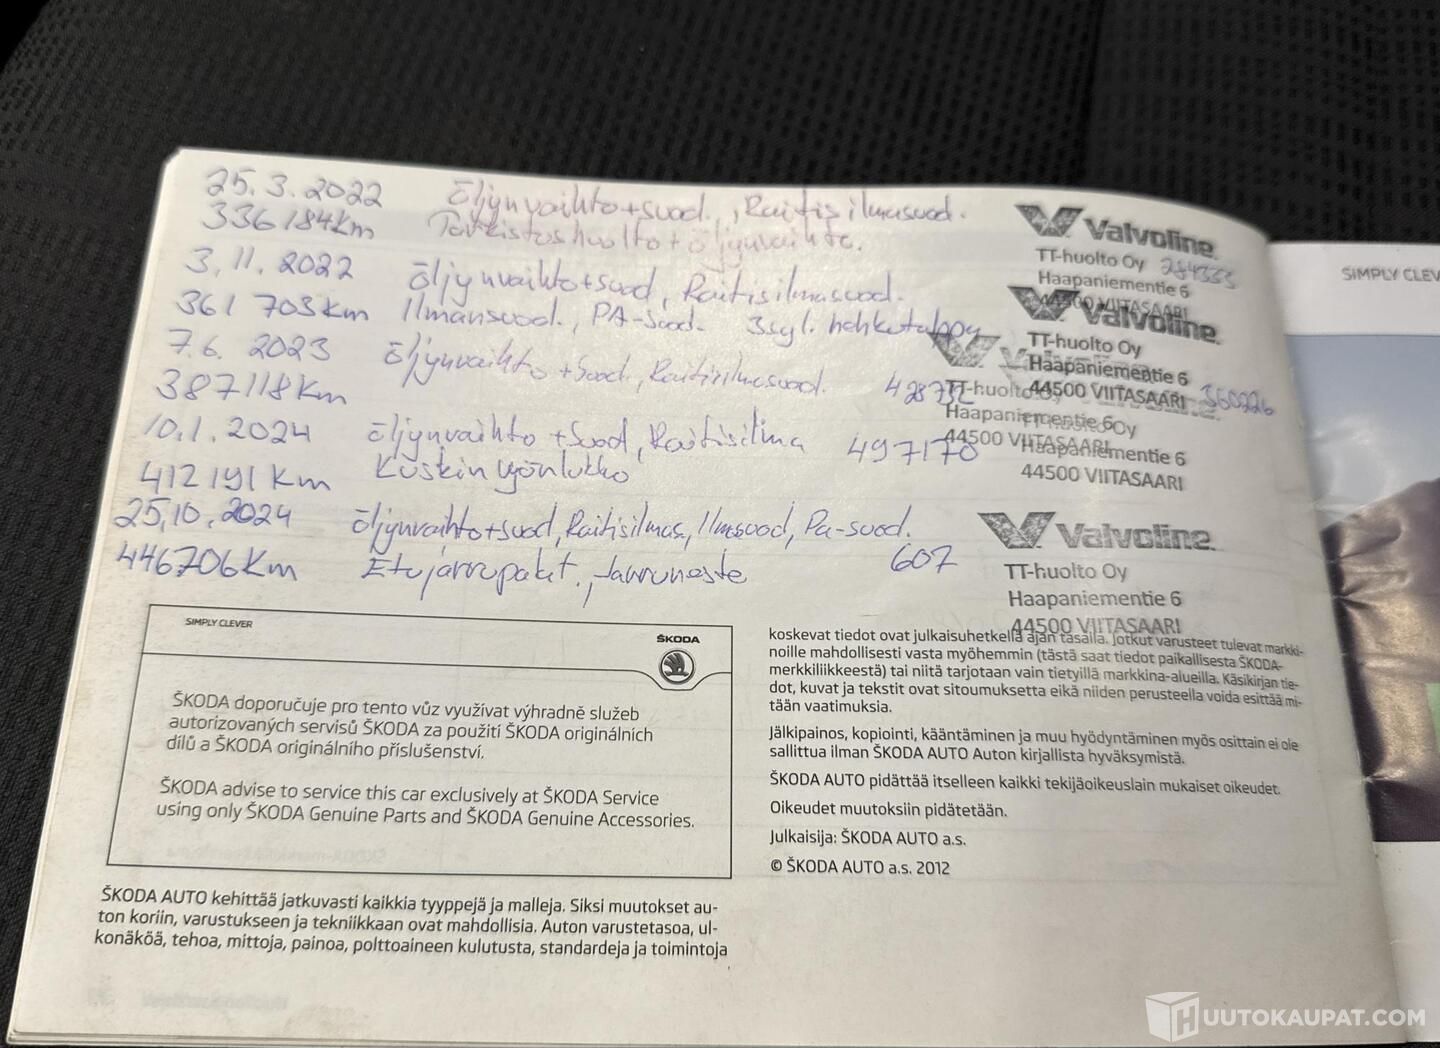 25.3.2022 Öljynvaihto+suod., Raitisilmasuod.
336184km Tarkistushuolto+öljynvaihto.
3.11.2022 Öljynvaihto+suod, Raitisilmasuod.
361 703km Ilmansuod., PA-Suod. 3syl. hehkutulppa
7.6. 2023 Öljynvaihto+Suod., Raitisilmasuod.
387118km
10.1.2024 Öljynvaihto+Suod, Raitisilma 497170
412 191 Km Kuskin vyönlukko
25.10.2024 Öljynvaihto+suod, Raitisilmas., Ilmasuod, Pa-suod.
446706Km Etujarrupalat., Jarruneste 607
Valvoline
TT-huolto Oy 284333
Haapaniementie 6
44500 VIITASAARI
Valvoline
TT-huolto Oy
Haapaniementie 6
44500 VIITASAARI 360226
TT-huolto
Haapaniementie 6
44500 VIITASAARI
Oy
Haapaniementie 6
44500 VIITASAARI
Valvoline
TT-huolto Oy
Haapaniementie 6
44500 VIITASAARI
SIMPLY CLEVER
ŠKODA
ŠKODA doporučuje pro tento vůz využívat výhradně služeb
autorizovaných servisů ŠKODA za použití ŠKODA originálních
dílů a ŠKODA originálního příslušenství.
ŠKODA advise to service this car exclusively at ŠKODA Service
using only ŠKODA Genuine Parts and ŠKODA Genuine Accessories.
ŠKODA AUTO kehittää jatkuvasti kaikkia tyyppejä ja malleja. Siksi muutokset au-
ton koriin, varustukseen ja tekniikkaan ovat mahdollisia. Auton varustetasoa, ul-
konäköä, tehoa, mittoja, painoa, polttoaineen kulutusta, standardeja ja toimintoja
koskevat tiedot ovat julkaisuhetkellä ajan tasalla. Jotkut varusteet tulevat markki-
noille mahdollisesti vasta myöhemmin (tästä saat tiedot paikallisesta ŠKODA-
merkkiliikkeestä) tai niitä tarjotaan vain tietyillä markkina-alueilla. Käsikirjan tie-
dot, kuvat ja tekstit ovat sitoumuksetta eikä niiden perusteella voida esittää mi-
tään vaatimuksia.
Jälkipainos, kopiointi, kääntäminen ja muu hyödyntäminen myös osittain ei ole
sallittua ilman ŠKODA AUTO Auton kirjallista hyväksymistä.
ŠKODA AUTO pidättää itselleen kaikki tekijäoikeuslain mukaiset oikeudet.
Oikeudet muutoksiin pidätetään.
Julkaisija: ŠKODA AUTO a.s.
© ŠKODA AUTO a.s. 2012
SIMPLY CLEV
HUUTOKAUPAT.COM